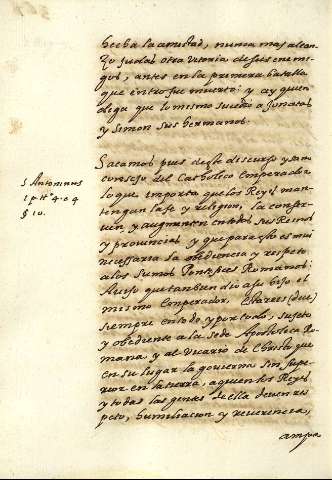 hecha la amistad, nunca mas alcan-
zo Judas otra vitoria de sus enemi-
gos, antes en la primera batalla
que entro fue muerto: y ay quien
diga que lo mismo sucedio a Jonatas
y Simon sus hermanos.
Sacamos pues deste discurso y san-
consejo del Catholico Emperador
lo que importa que los Reyes man-
tengan la fe y religion, la conser-
uen, y augmenten en todos sus Reinos
y prouincias, y que para esto es mui
necessaria la obediencia y respeto
a los Sumos Pontifices Romanos:
Auiso que tanbien dio a su hijo el
mismo Emperador, Estareis (dice)
siempre en todo y por todo, sujeto
y obediente a la Sede Apostolica Ro-
mana, y al Vicario de Christo que
en su lugar la gouierna sin supe-
rior en la tierra, a quien los Reyes
y todas las gentes de ella deuen res-
peto, humiliacion y reuerencia,
ampa
S Antoninus
1 p tt° 4. c 4
§ 10.